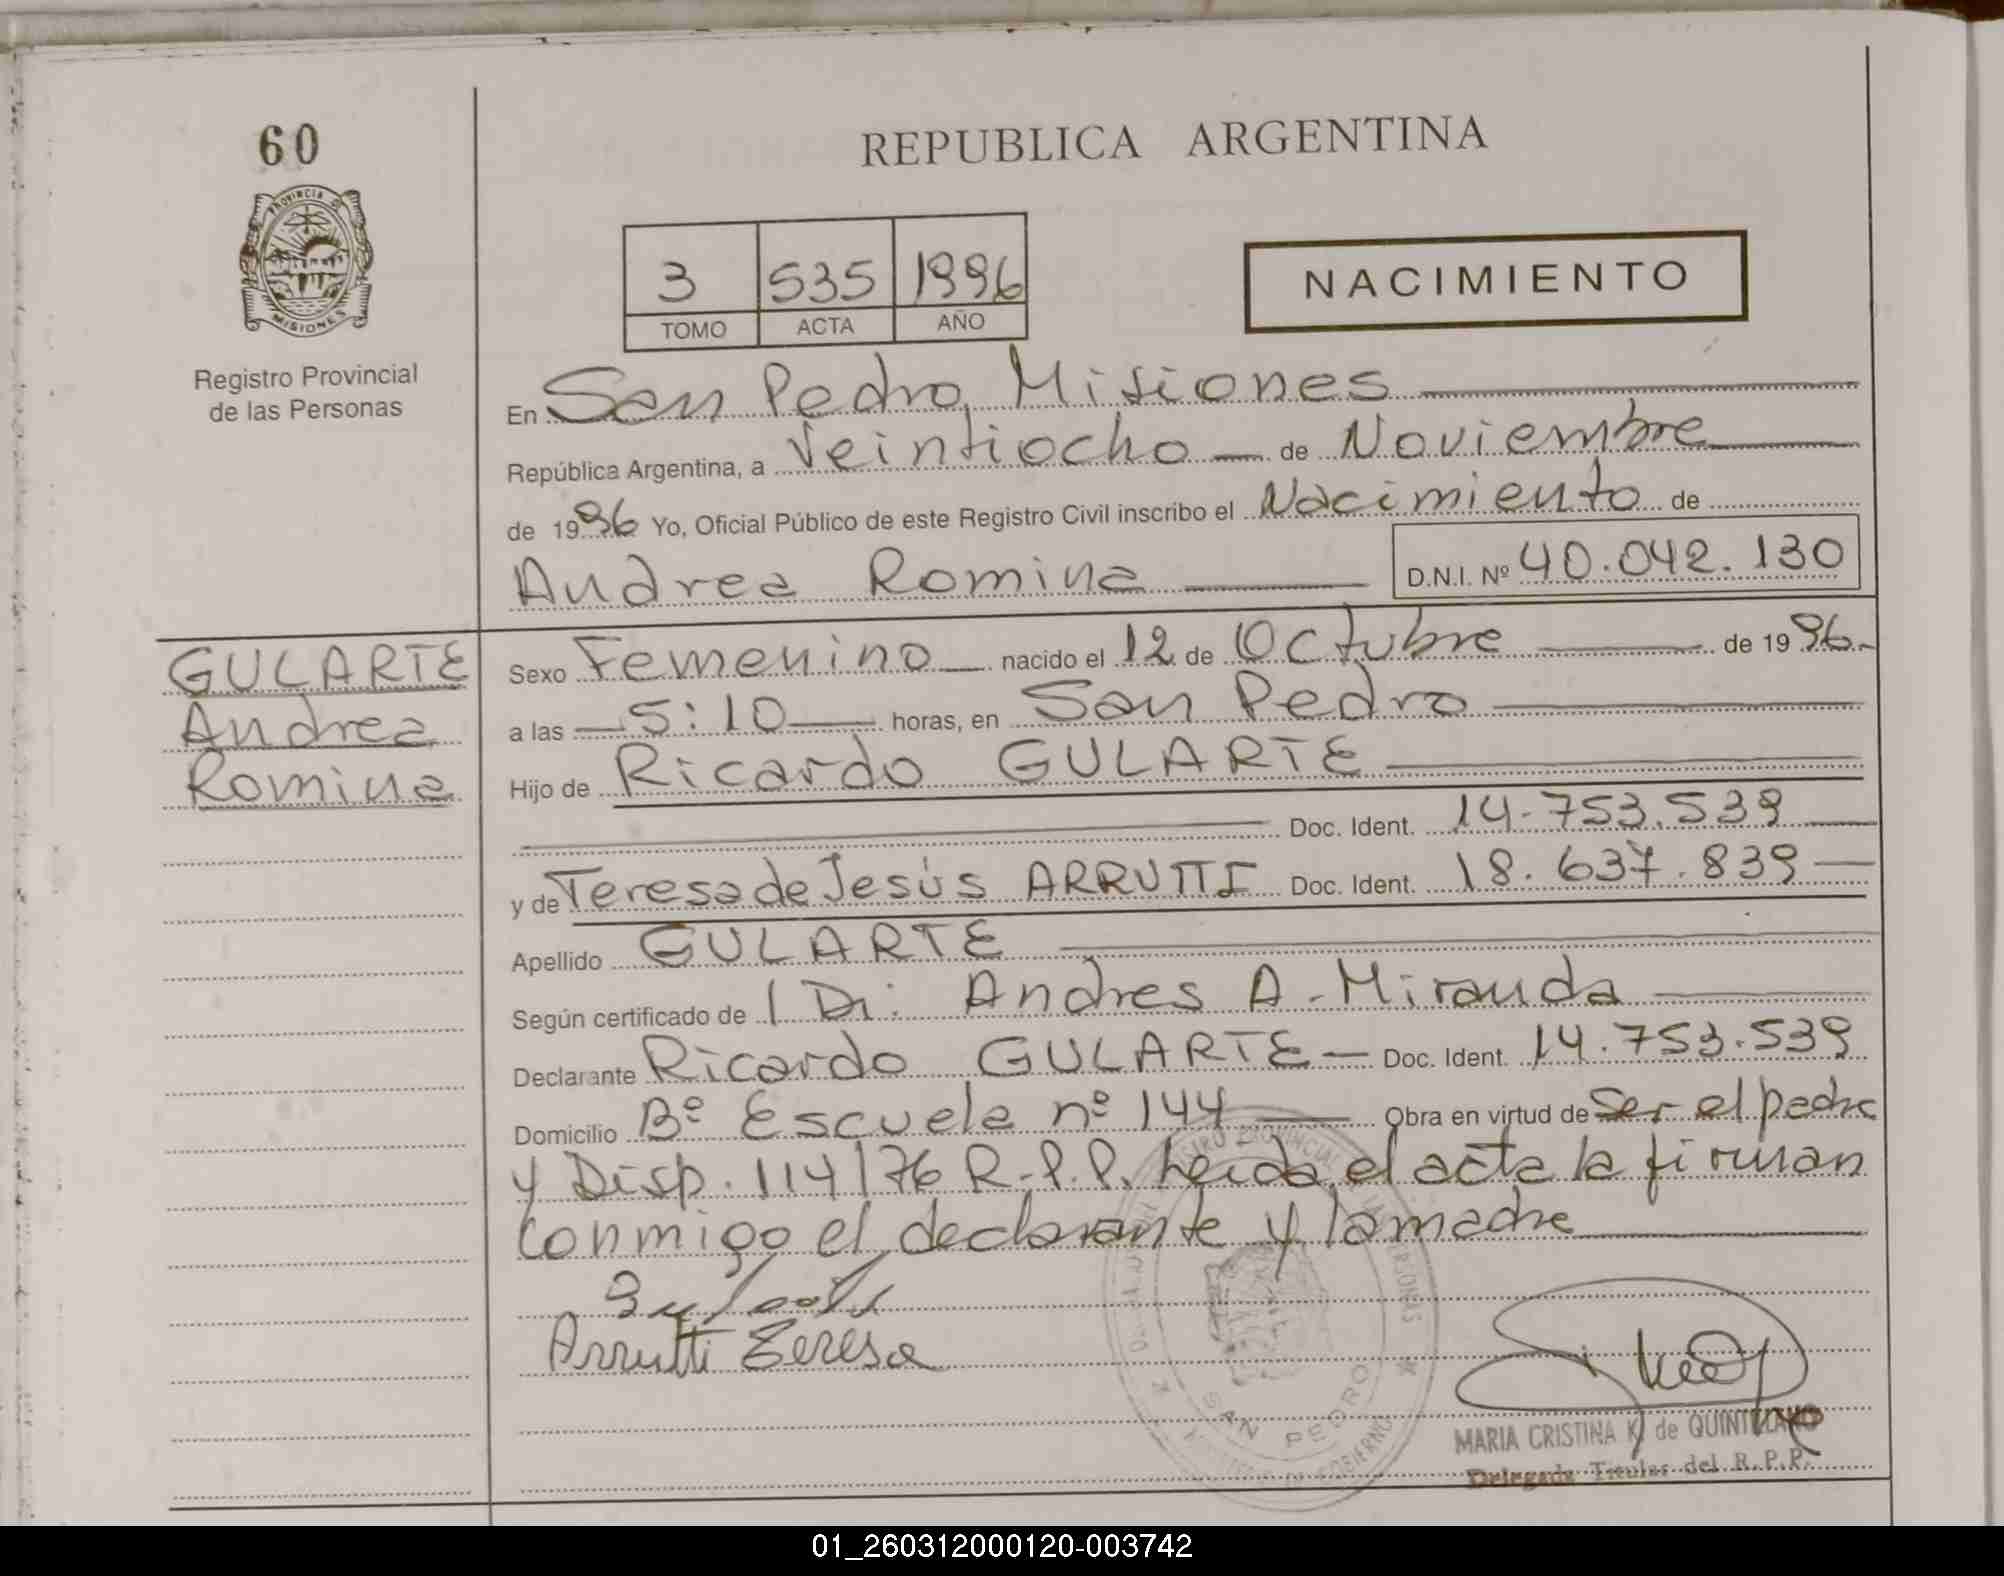 60
PROVINCIA DE
MISIONES
Registro Provincial
de las Personas
REPUBLICA ARGENTINA
3 535 1996
TOMO ACTA AÑO
NACIMIENTO
En San Pedro, Misiones
República Argentina, a veintiocho de Noviembre
de 1996 Yo, Oficial Público de este Registro Civil inscribo el Nacimiento de
Andrea Romina D.N.I. Nº 40.042.130
GULARTE
Andrea
Romina
Sexo Femenino nacido el 12 de Octubre de 1996.-
a las 5:10 horas, en San Pedro
Hijo de Ricardo GULARTE
Doc. Ident. 14.753.539
y de Teresa de Jesús ARRUTTI Doc. Ident. 18.637.839
Apellido GULARTE
Según certificado de Andres A. Miranda
Declarante Ricardo GULARTE Doc. Ident. 14.753.539
Domicilio Bº Escuela nº 144 Obra en virtud de Ser el padre
y Disp. 114/76 R.P.P. Leida el acta la firman
conmigo el declarante y la madre
Arrutti Teresa
SAN PEDRO
MARIA CRISTINA K. de QUINTILLANO
Delegada Titular del R.P.P.
01_260312000120-003742